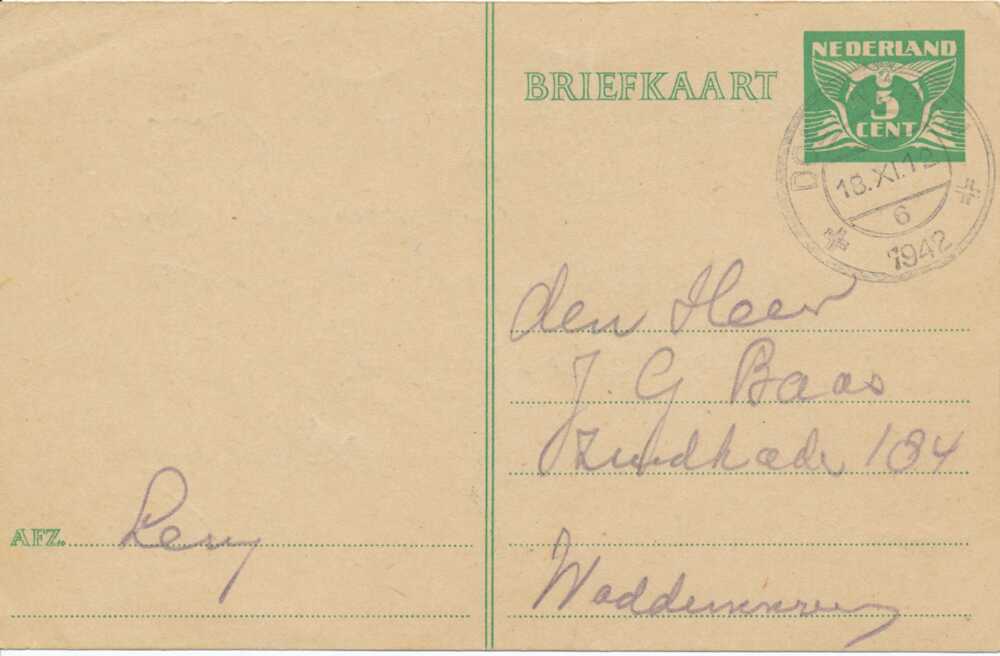 BRIEFKAART
NEDERLAND
5
CENT
18.XI.12
6
1942
den Heer
J. G Baas
Zuidkade 134
AFZ. Leny
Waddinxveen